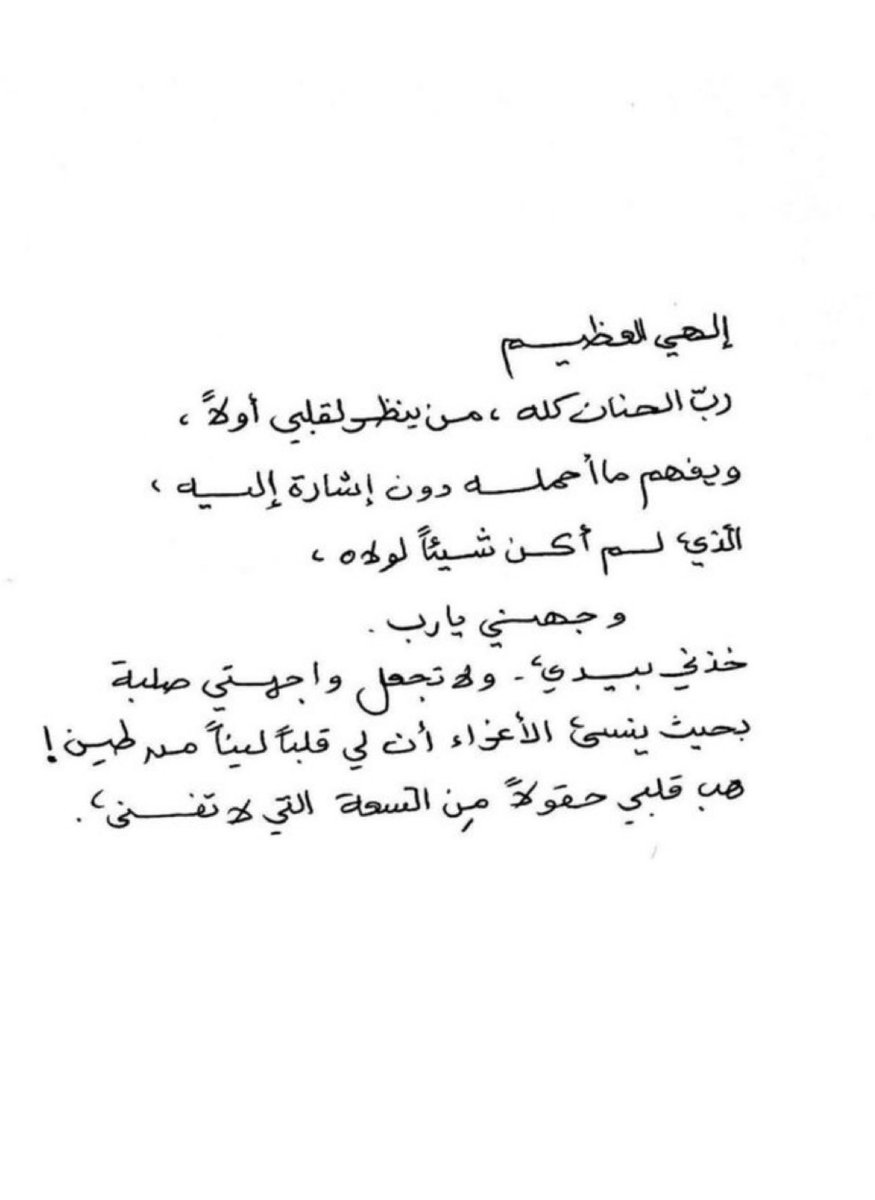 إلهي العظيم
ربّ الحنان كله ، من ينظر لقلبي أولاً ،
ويفهم ما أحمله دون إشارة إليه ،
الّذي لم أكن شيئاً لولاه ،
وجهني يارب .
خذني بيدي - ولا تجعل واجهتي صلبة
بحيث ينسى الأعزاء أن لي قلباً ليناً من طين !
هب قلبي حقولاً مِن السعة التي لا تفنى .